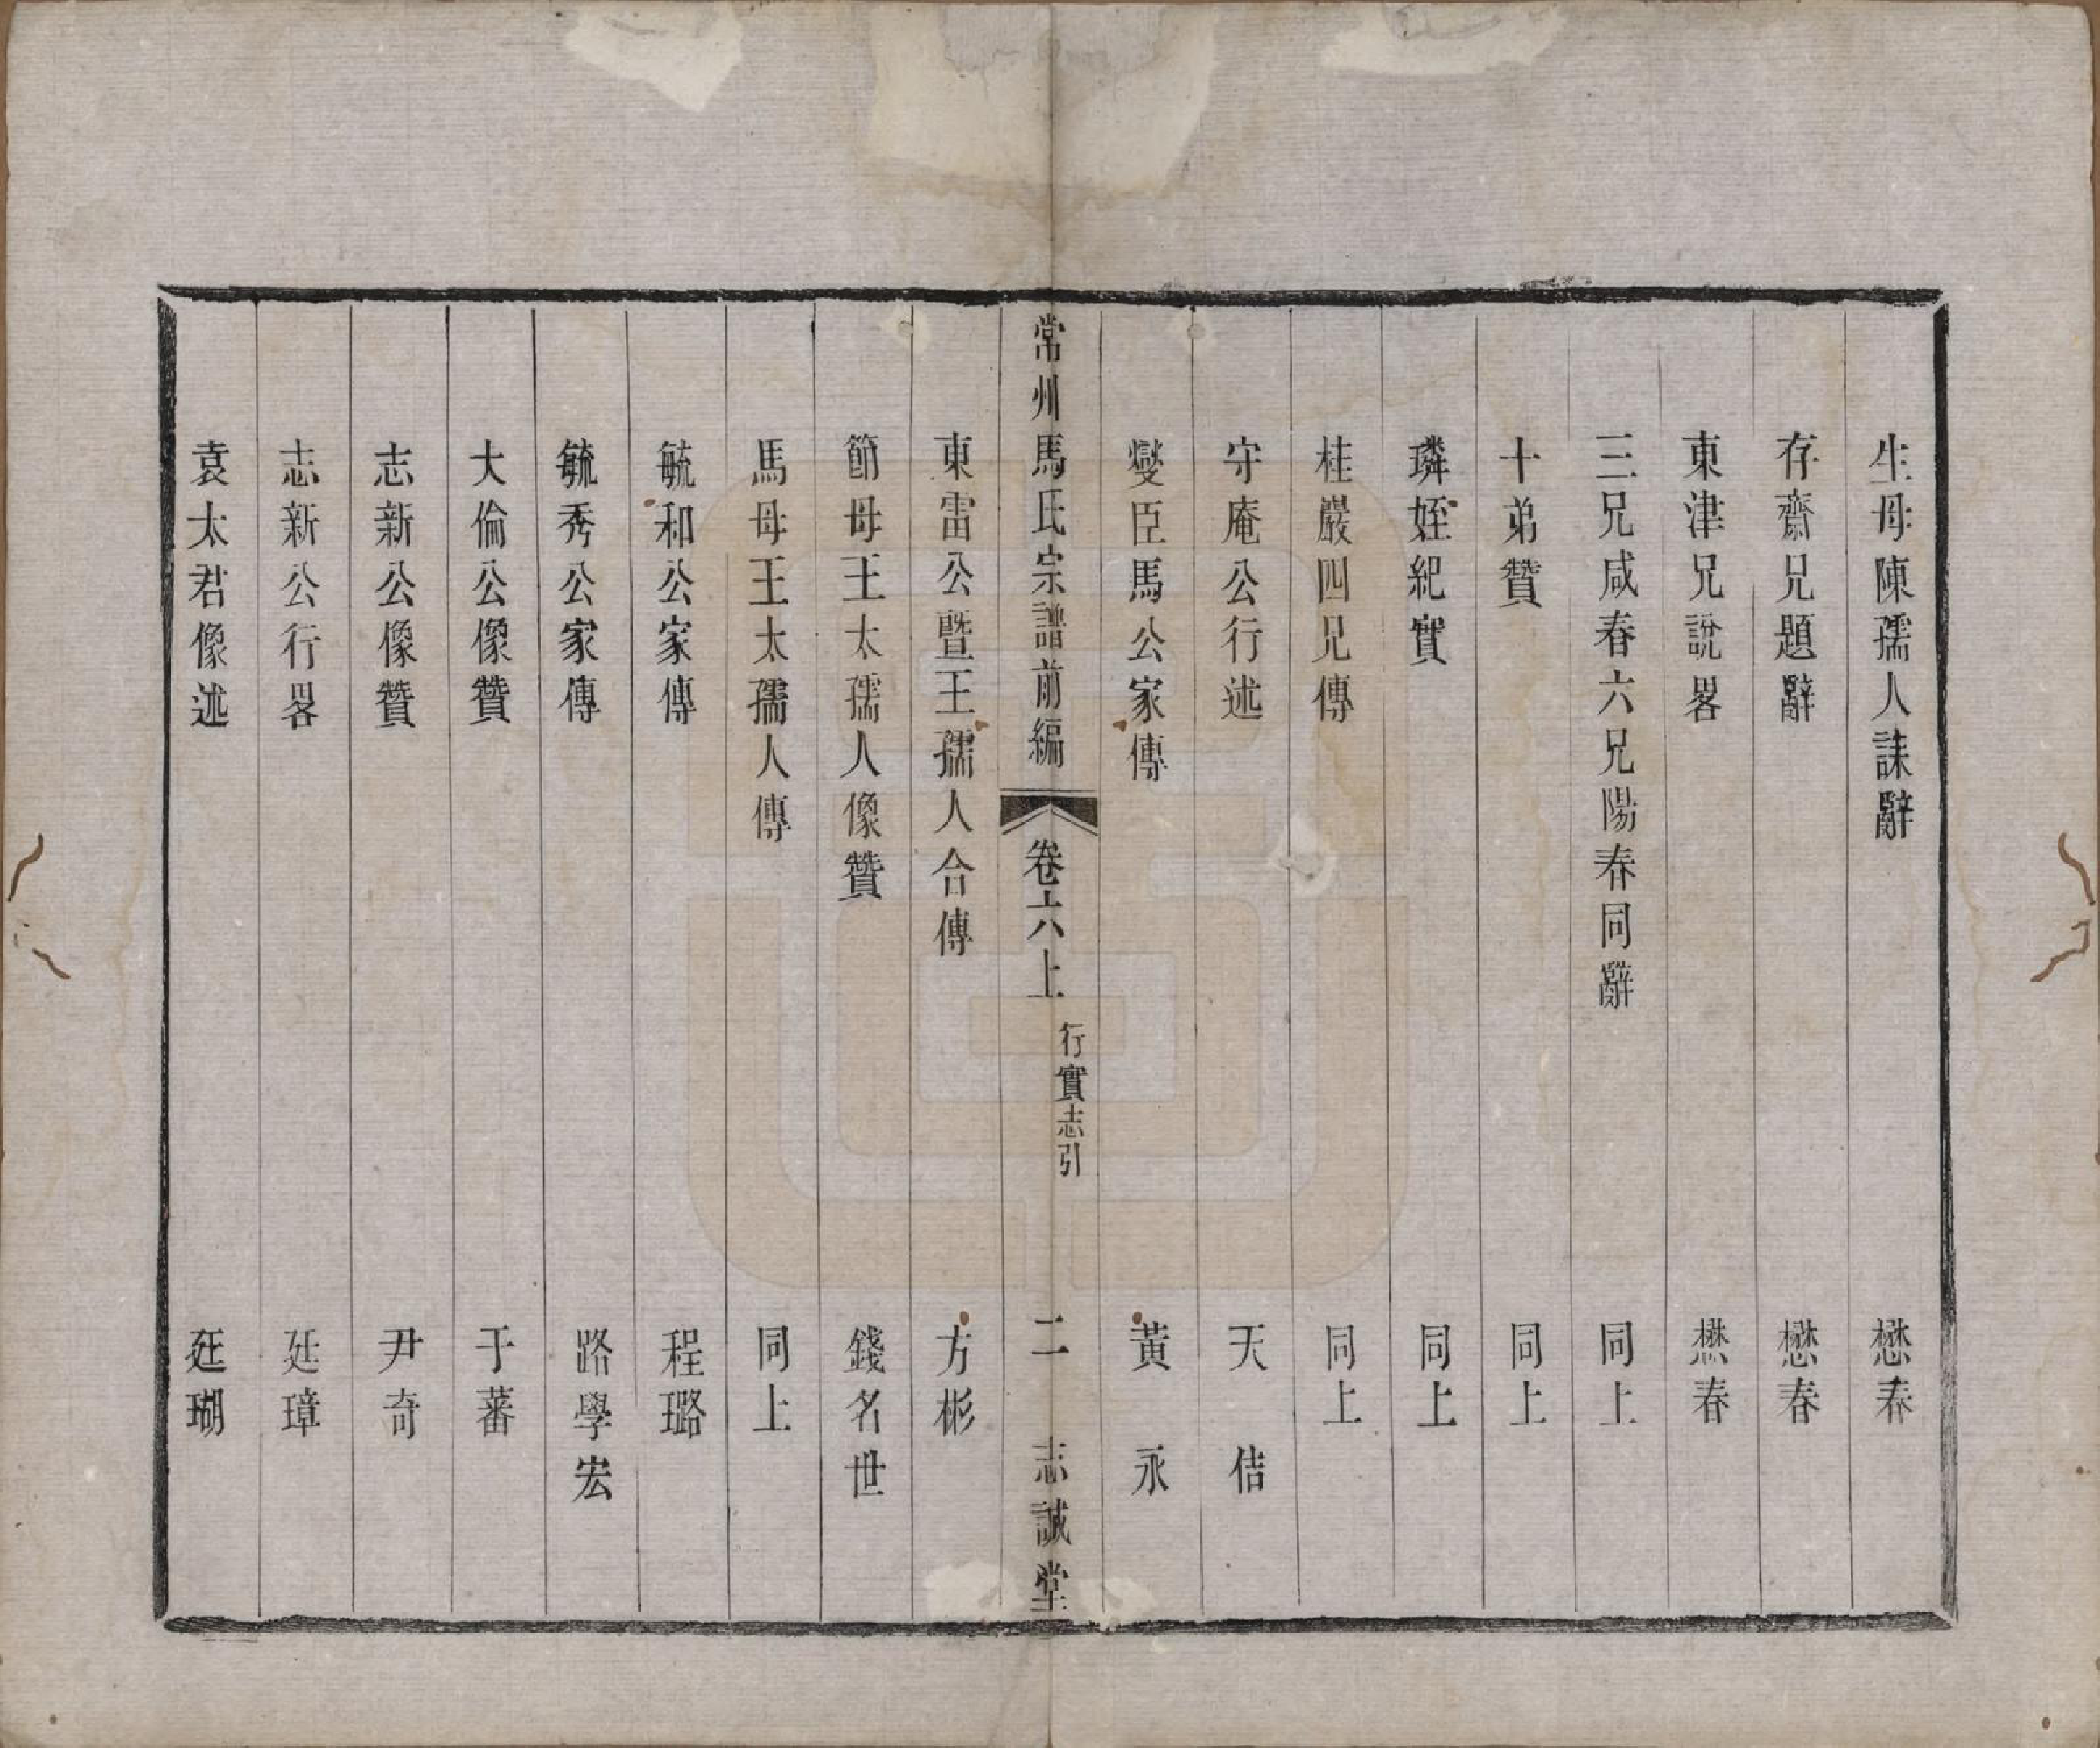 生母陳孺人誄辭　懋春
存齋兄題辭　懋春
東津兄說畧　懋春
三兄咸春六兄陽春同辭　同上
十弟贊　同上
璘姪紀實　同上
桂巖四兄傳　同上
守庵公行述　天佶
燮臣馬公家傳　黃永
常州馬氏宗譜前編　卷六上　行實志引　二　志誠堂
東雷公暨王孺人合傳　方彬
節母王太孺人像贊　錢名世
馬母王太孺人傳　同上
毓和公家傳　程璐
毓秀公家傳　路學宏
大倫公像贊　于蕃
志新公像贊　尹奇
志新公行畧　廷璋
袁太君像述　廷瑚